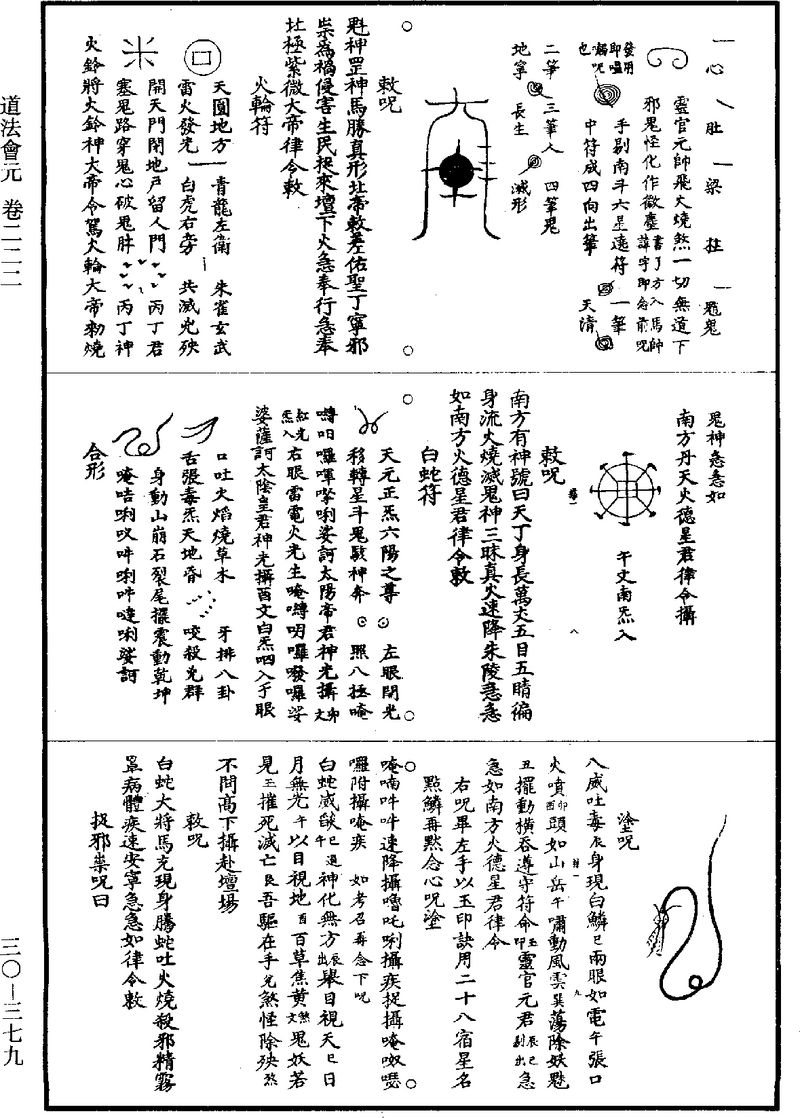 道法會元 卷二二二
一心 乀肚 一梁 柱 一䰡鬼
靈官元帥飛火燒煞一切無道下
邪鬼怪化作微塵書了方入馬帥諱字即念前呪
發用即噀酒呪也 手剔南斗六星遶符 一筆
中符成四向出筆 天清
二筆 三筆人 四筆鬼
地寧 長生 滅形
敕呪
魁神罡神馬勝真形北帝敕差佑聖丁寧邪
祟為禍侵害生民捉來壇下火急奉行急奉
北極紫微大帝律令敕
火輪符
天圓地方 青龍左衛 朱雀玄武
雷火發光 白虎右旁 共滅兇殃
開天門閉地戶留人門 丙丁君
塞鬼路穿鬼心破鬼肚 丙丁神
火鈴將火鈴神大帝令駕火輪大帝勑燒
鬼神急急如
南方丹天火德星君律令攝
午文南炁入
敕呪
南方有神號曰天丁身長萬丈五目五睛徧
身流火燒滅鬼神三昧真火速降朱陵急急
如南方火德星君律令敕
白蛇符
天元正炁六陽之尊 左眼閉光
移轉星斗鬼駭神奔 照八極唵
嚩日囉㖷㘑唎娑訶太陽帝君神光攝卯文
紅光炁入右眼雷電火光主唵嚩明囉發囉娑
婆薩訶太陰皇君神光攝酉文白炁呬入于眼
口吐火焰燒草木 牙排八卦
舌張毒炁天地昏 咬殺兇群
身動山崩石裂尾擺震動乾坤
唵咭唎㕭吽唎吽噠唎娑訶
合形
塗呪
八威吐毒辰身現白鱗巳兩眼如電午張口
火噴酉卯頭如山岳午嘯動風雲巽蕩除妖魅
丑擺動橫吞遵守符命玉印靈官元君辰巳剔出急
急如南方火德星君律令
右呪畢左手以玉印訣用二十八宿星名
點鱗再點念心呪塗
唵喃吽吽速降攝嚕吒唎攝疾捉攝唵呶㘕
囉附攝唵疾 如考召再念下呪
白蛇威㷔午巳過神化無方辰出舉目視天巳日
月無光午以目視地酉百草焦黃煞文鬼妖若
見玉摧死滅亡艮吾驅在手兌煞怪除殃煞
不問高下攝赴壇場
敕呪
白蛇大將馬充現身騰蛇吐火燒殺邪精霧
罩病體疾速安寧急急如律令敕
捉邪祟呪曰
三〇—三七九